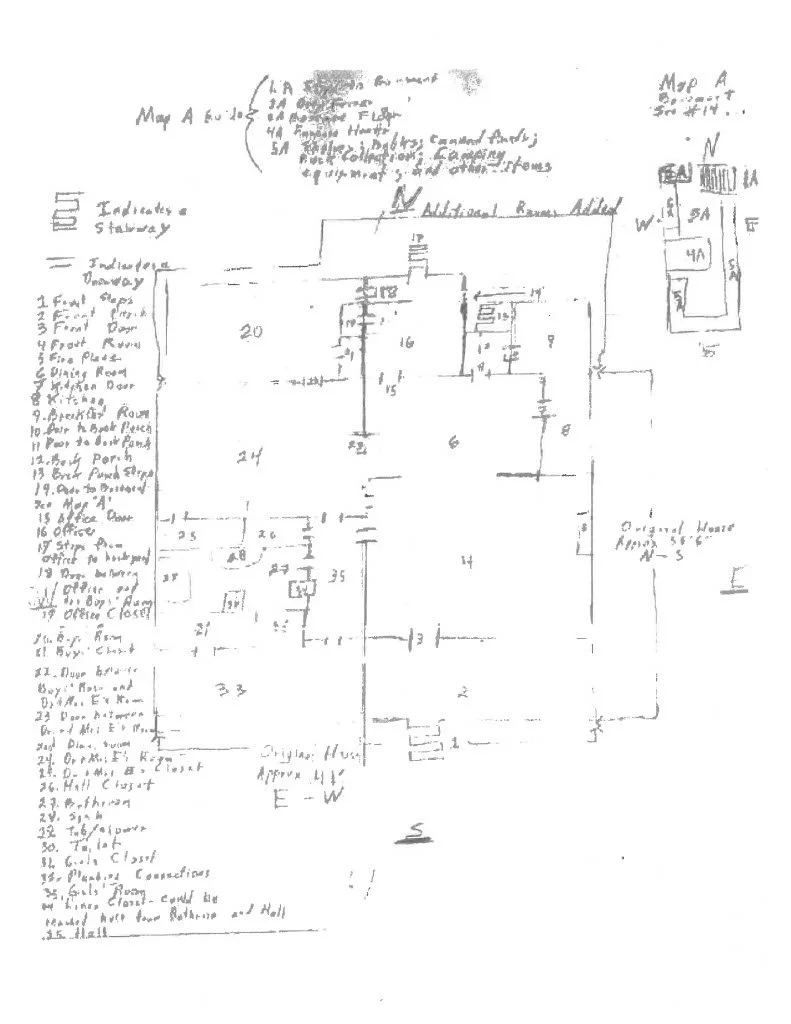 Map A Guide
1A Steps to Basement
2A
3A Basement Floor
4A Furnace Heater
5A Shelves; Bottles; canned foods;
Rock Collection; Camping
equipment; and other Items
Map A
Basement
See #14
N
1A
W
5A
3A
E
4A
5A
5A
S
Indicates a
Stairway
N
Additional Rooms Added
Indicates a
Doorway
1 Front Steps
2 Front Porch
3 Front Door
4 Front Room
5 Fire Place
6 Dining Room
7 Kitchen Door
8 Kitchen
9. Breakfast Room
10 Door to Back Porch
11 Door to Back Porch
12. Back Porch
13 Back Porch Steps
14. Door to Basement
See Map "A"
15 Office Door
16 Office
17 Steps from
Office to backyard
18 Door between
Office and
Boys' Room
19 Office Closet
20. Boys' Room
21 Boys' Closet
22. Door between
Boys' Room and
Dr & Mrs E's Room
23 Door between
Dr and Mrs E's Room
and Dining room
24. Dr & Mrs E's Room
25. Dr & Mrs E's Closet
26. Hall Closet
27. Bathroom
28. Sink
29 Tub/shower
30. Toilet
31. Girls Closet
32. Plumbing Connections
33. Girls' Room
34 Linen Closet - could be
reached both from Bathroom and Hall
35 Hall
17
20
18
19
16
14
13
12
9
21
22
15
11
7
6
8
23
24
25
26
28
27
5
4
35
34
30
31
3
33
2
1
Original House
Approx 55'6"
N - S
E
W
Original House
Approx 41'
E - W
S